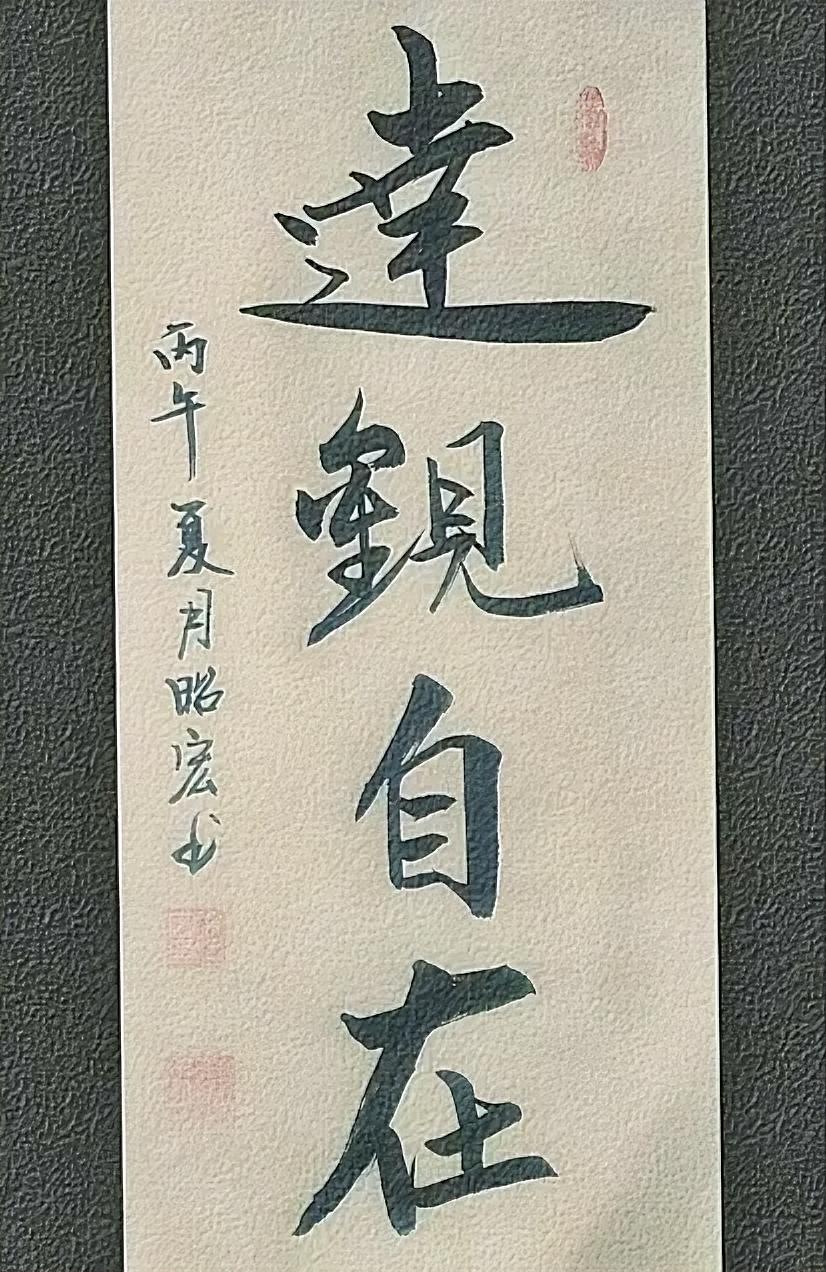 達觀自在
丙午夏月昭宏书